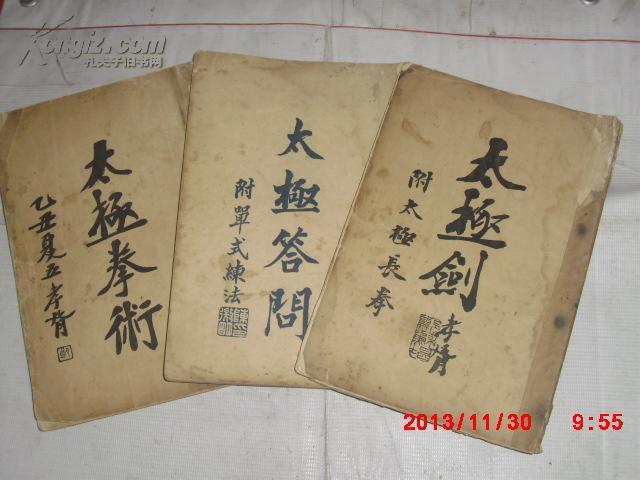 Kongfz.com
孔夫子旧书网
太極拳術
乙丑夏五孝胥
太極答問
附單式練法
太極劍
附太極長拳
孝胥
2013/11/30 9:55